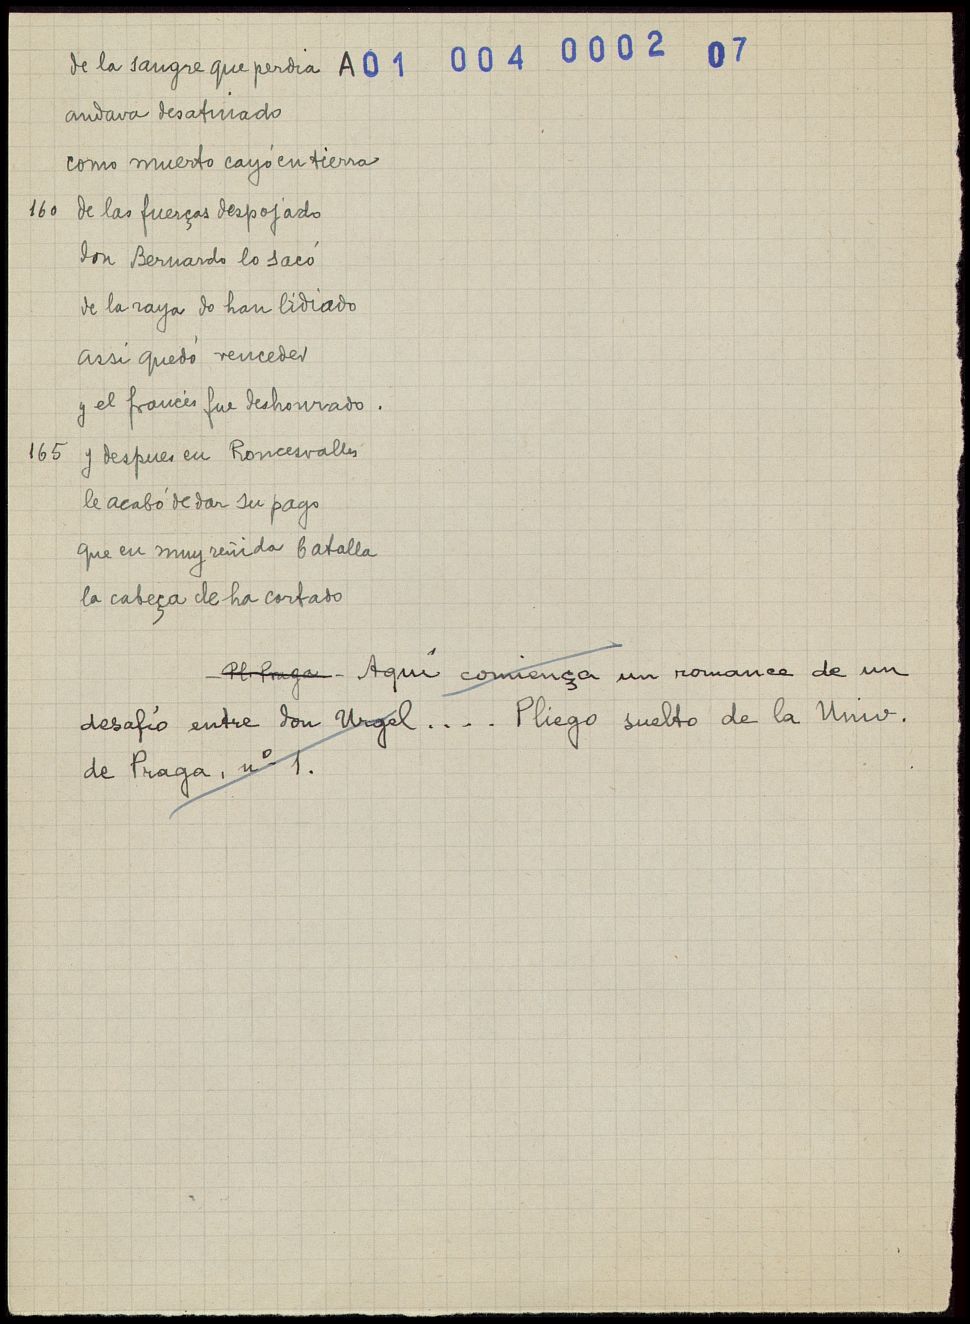 de la sangre que perdia A01 004 0002 07
andava desatinado
como muerto cayó en tierra
160 de las fuerças despojado
don Bernardo lo sacó
de la raya do han lidiado
assi quedó vencedor
y el francés fue deshonrado.
165 y despues en Roncesvalles
le acabó de dar su pago
que en muy reñida batalla
la cabeça le ha cortado
Pl. Praga - Aquí comiença un romance de un
desafío entre don Urgel .... Pliego suelto de la Univ.
de Praga, nº 1.